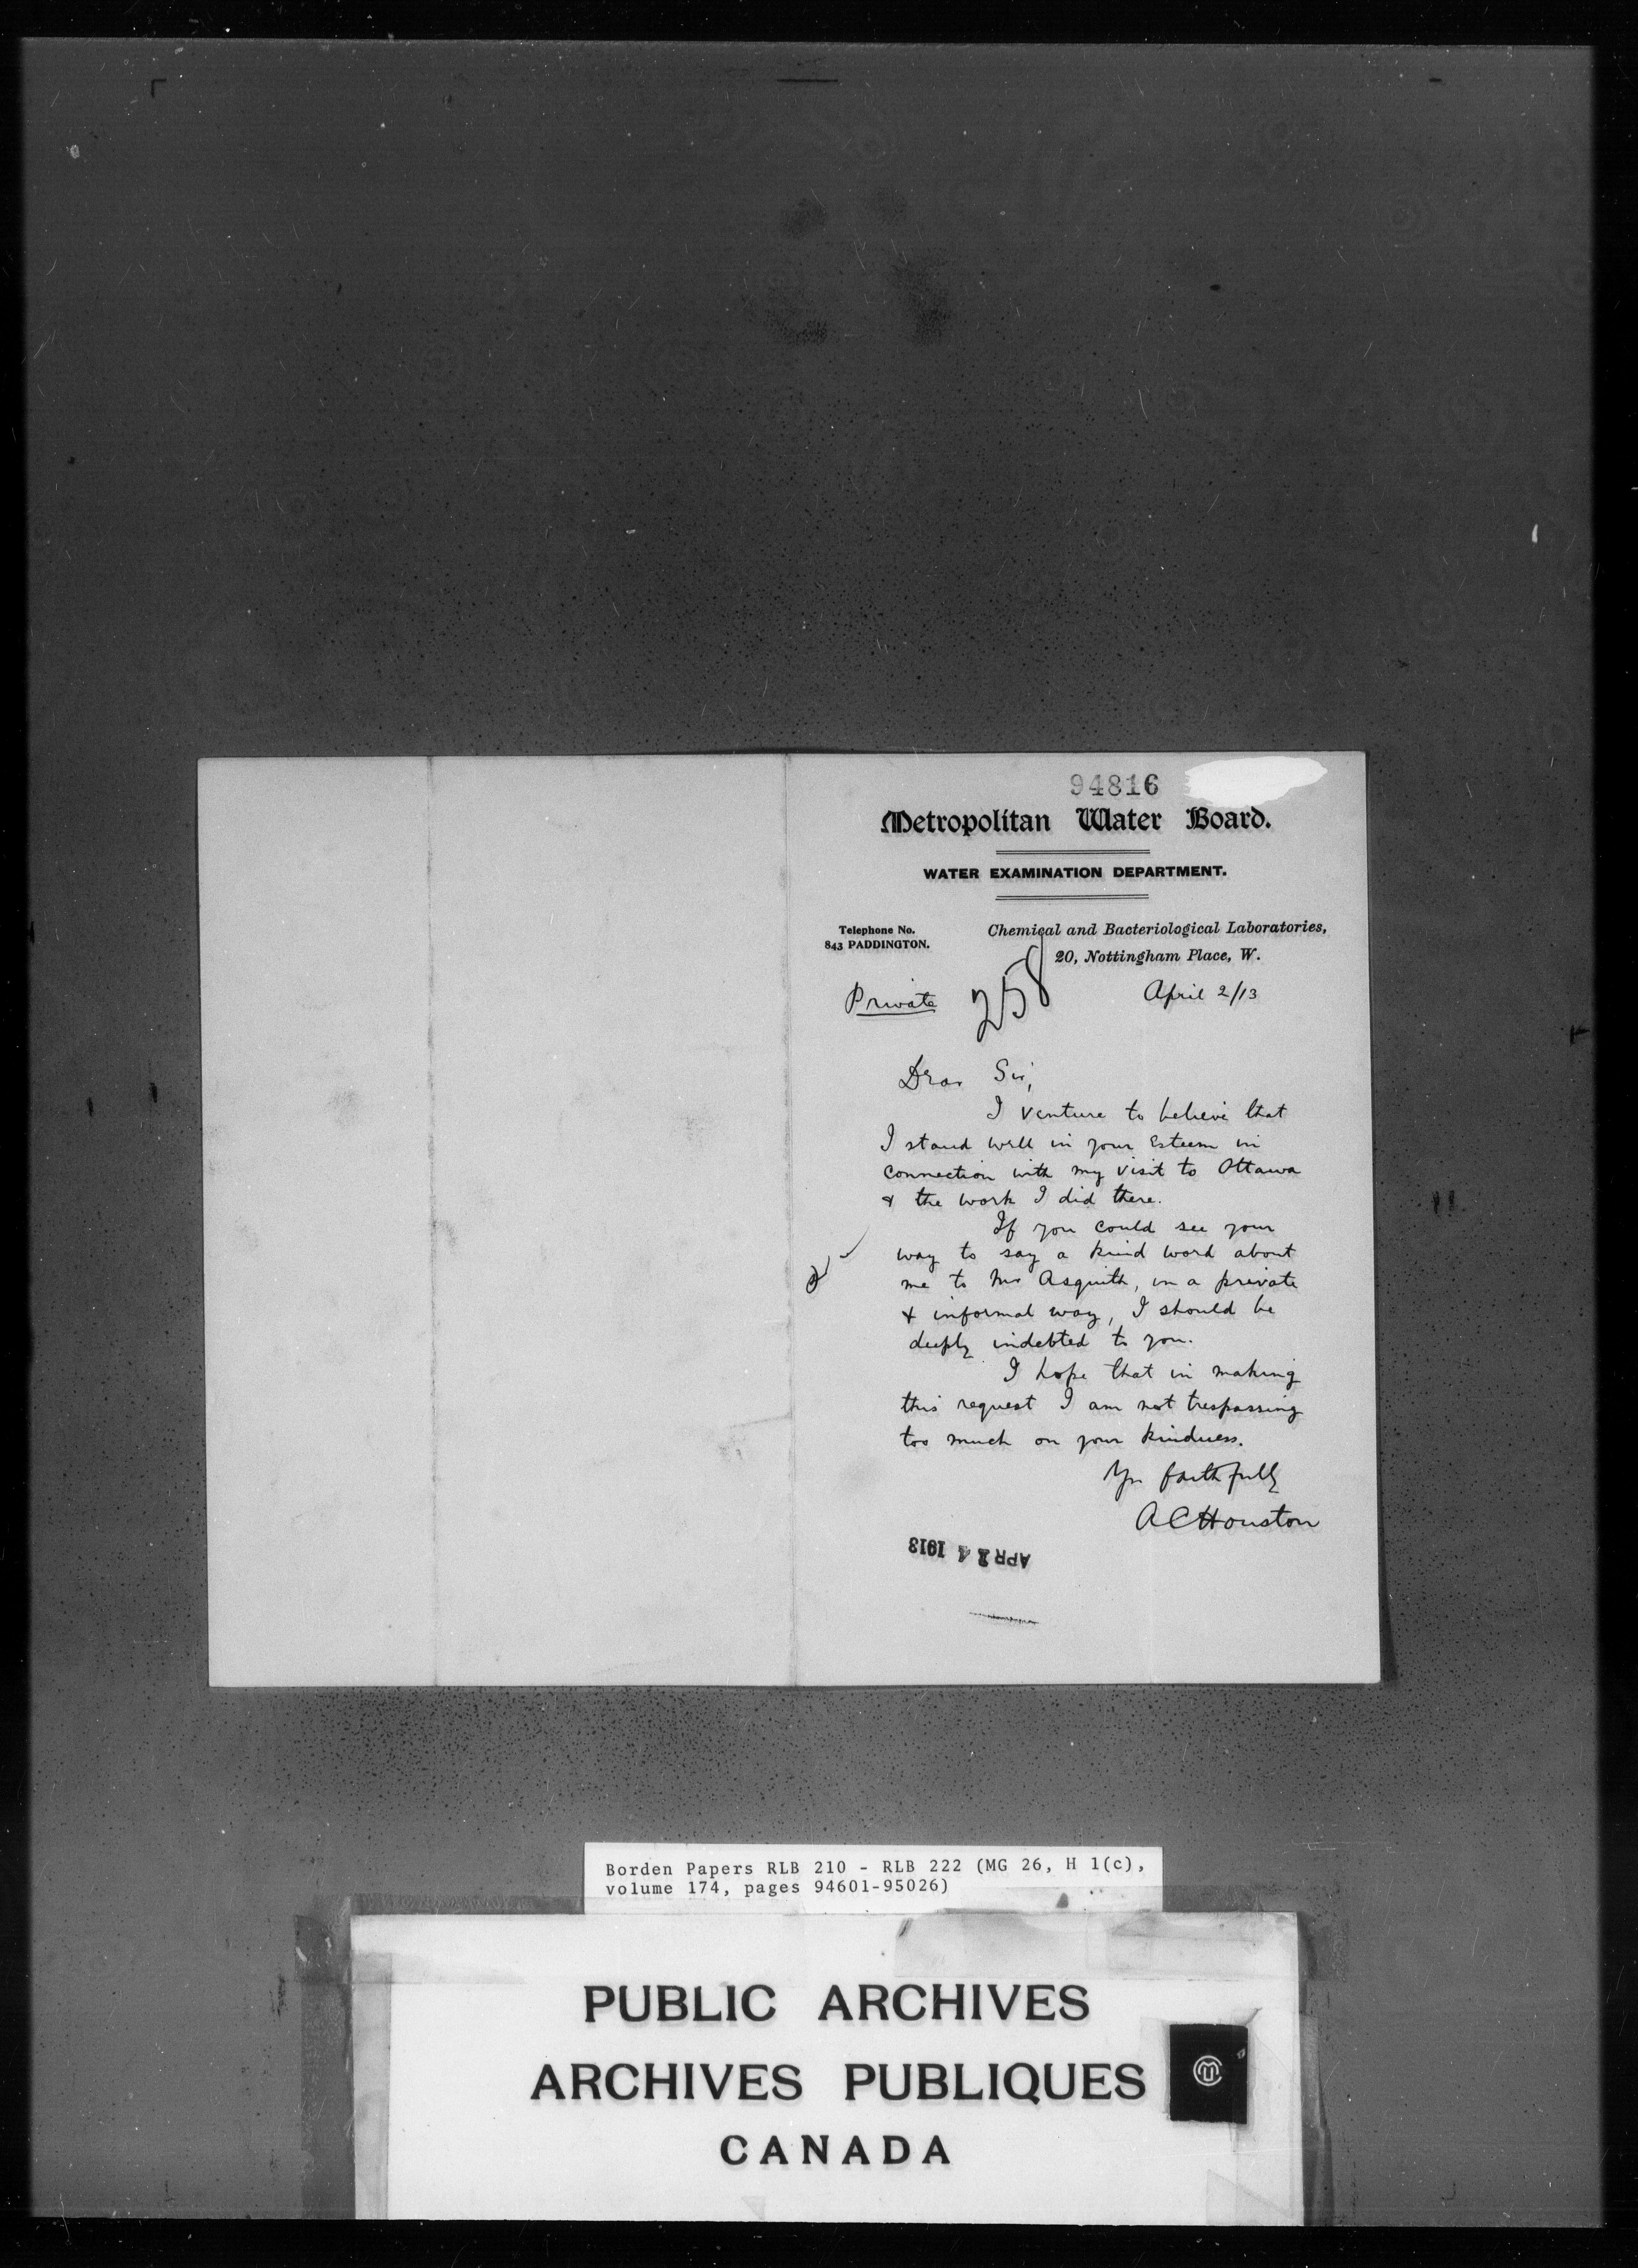 94816
Metropolitan Water Board.
WATER EXAMINATION DEPARTMENT.
Telephone No.
843 PADDINGTON.
Chemical and Bacteriological Laboratories,
20, Nottingham Place, W.
Private
258
April 2/13
Dear Sir,
I venture to believe that
I stand well in your Esteem in
connection with my visit to Ottawa
& the work I did there.
If you could see your
way to say a kind word about
me to Mr Asquith, in a private
& informal way, I should be
deeply indebted to you.
I hope that in making
this request I am not trespassing
too much on your kindness.
Yrs faithfully
A C Houston
APR 14 1913
Borden Papers RLB 210 - RLB 222 (MG 26, H 1(c),
volume 174, pages 94601-95026)
PUBLIC ARCHIVES
ARCHIVES PUBLIQUES
CANADA